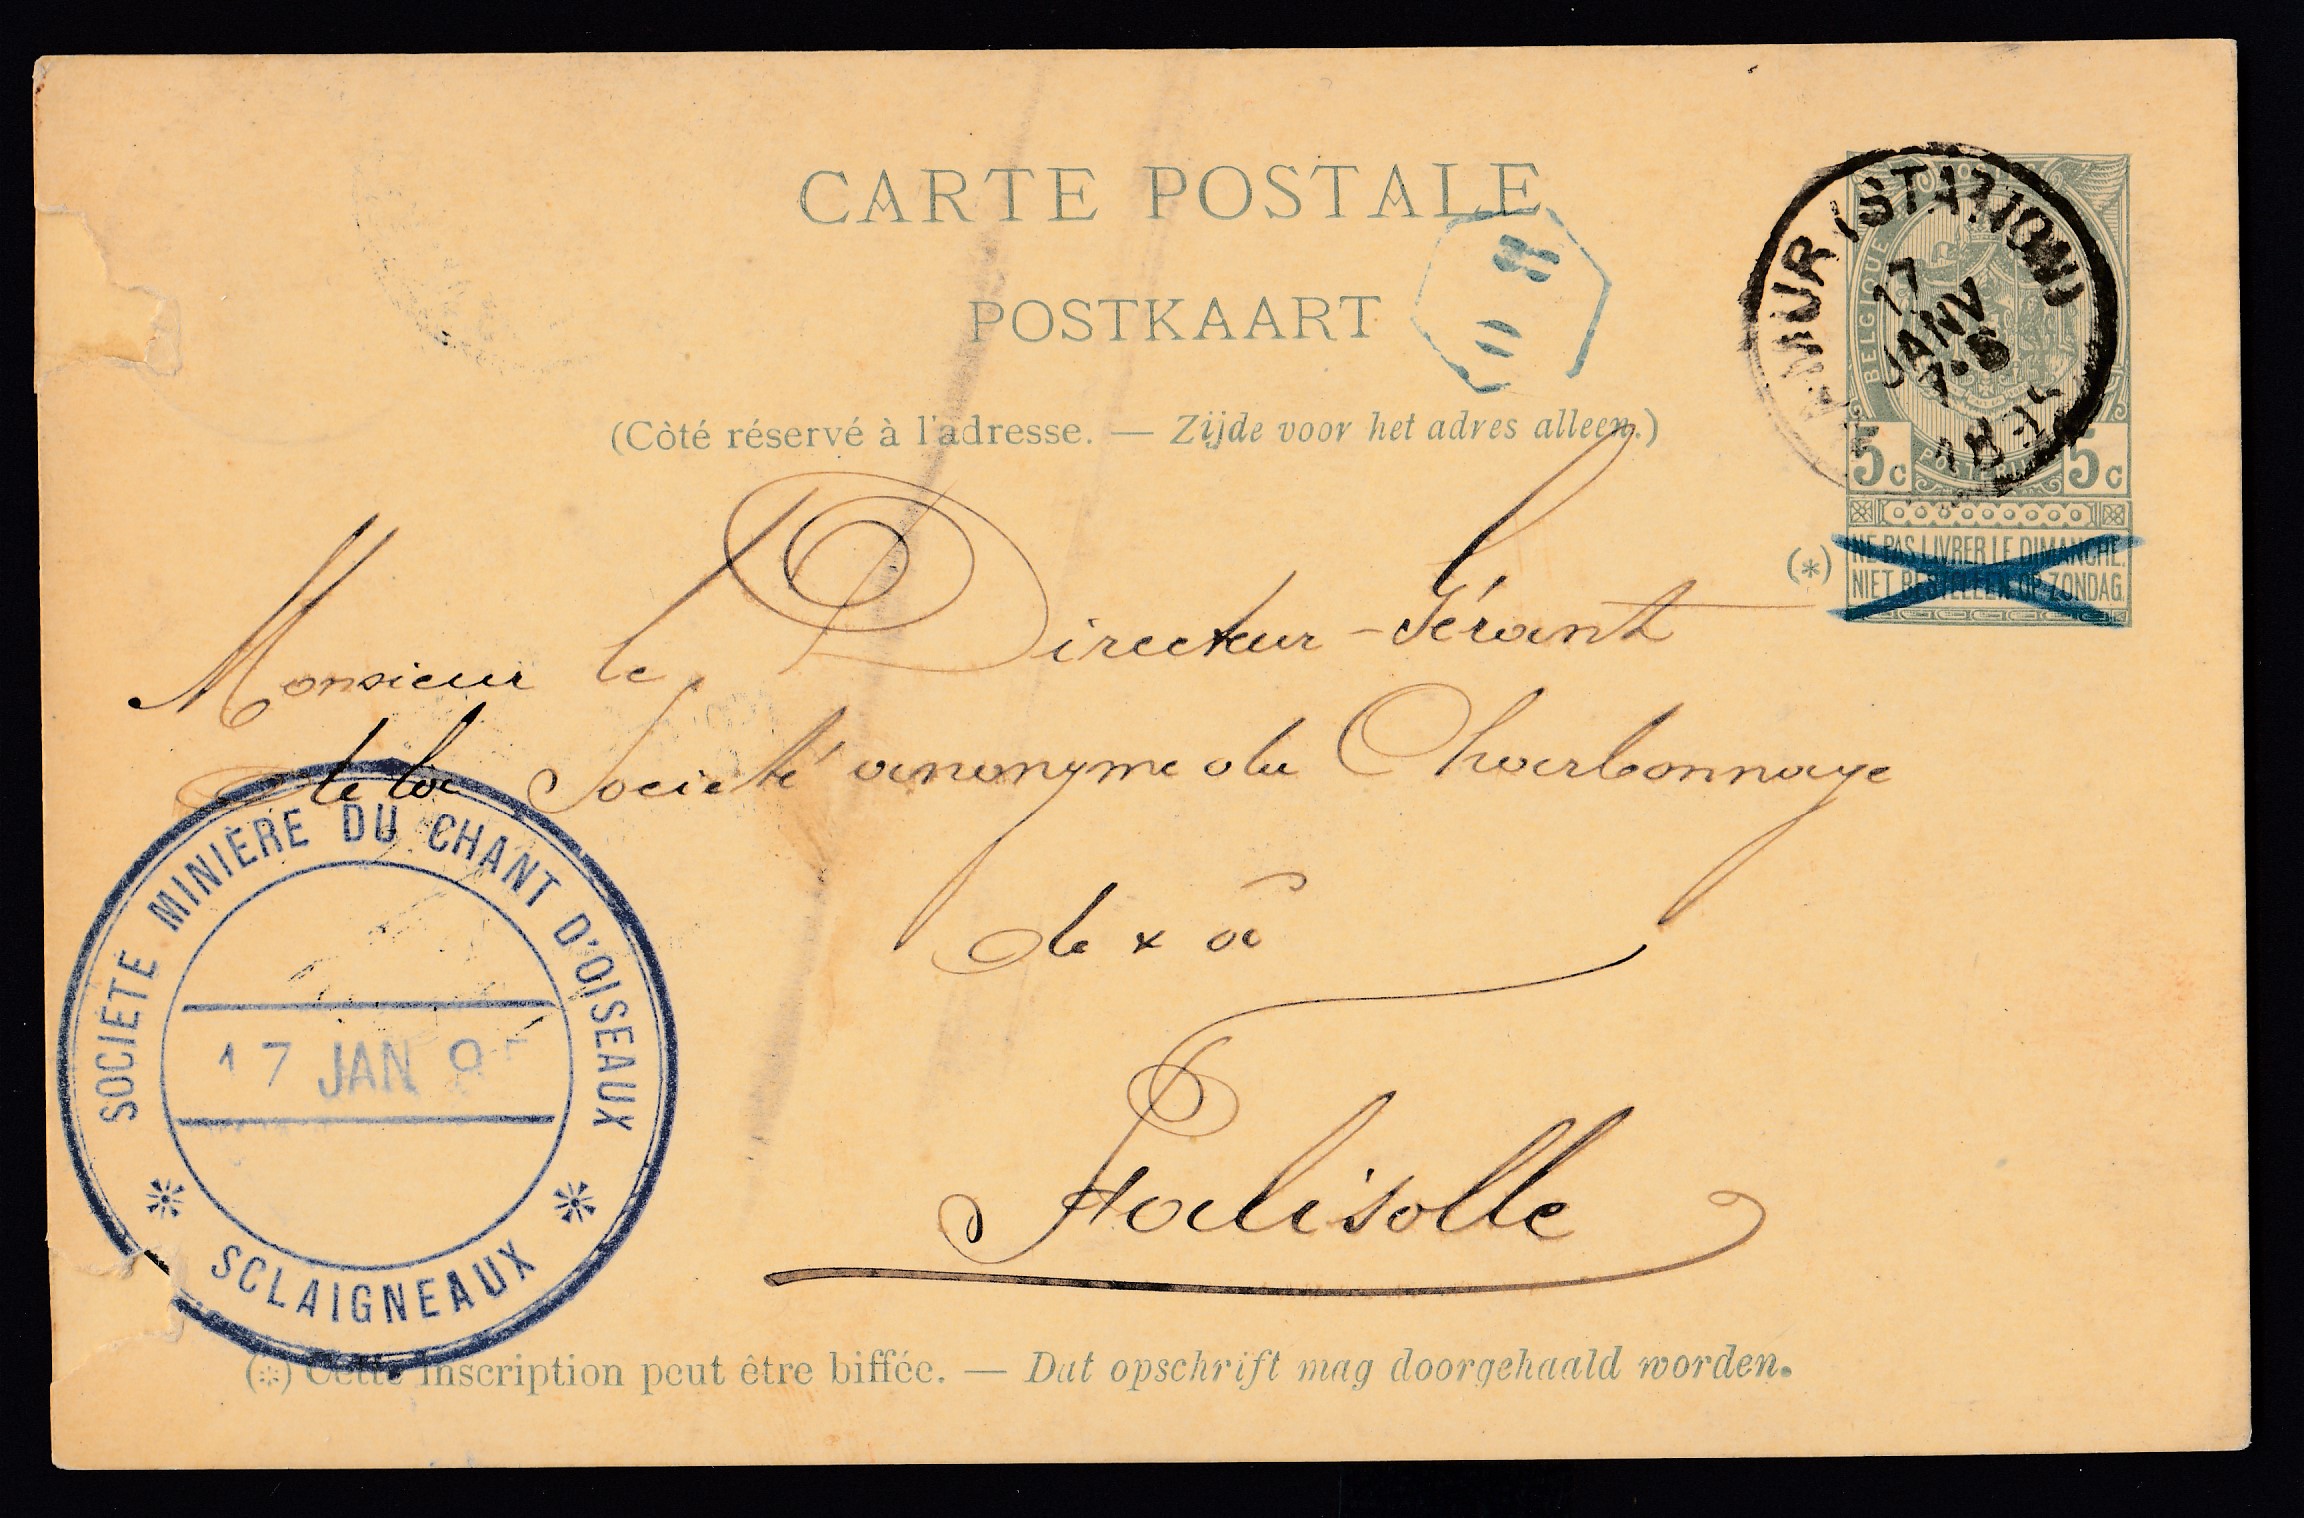 CARTE POSTALE
POSTKAART
(Côté réservé à l'adresse. — Zijde voor het adres alleen.)
NAMUR (STATION)
17
JANV
BELGIQUE
POSTERIJEN
5c 5c
(*) NE PAS LIVRER LE DIMANCHE.
NIET BESTELLEN OP ZONDAG.
Monsieur le Directeur-Gérant
de la Société anonyme du Charbonnage
de & à
Falisolle
SOCIÉTÉ MINIÈRE DU CHANT D'OISEAUX
17 JAN 9
SCLAIGNEAUX
(*) Cette inscription peut être biffée. — Dat opschrift mag doorgehaald worden.